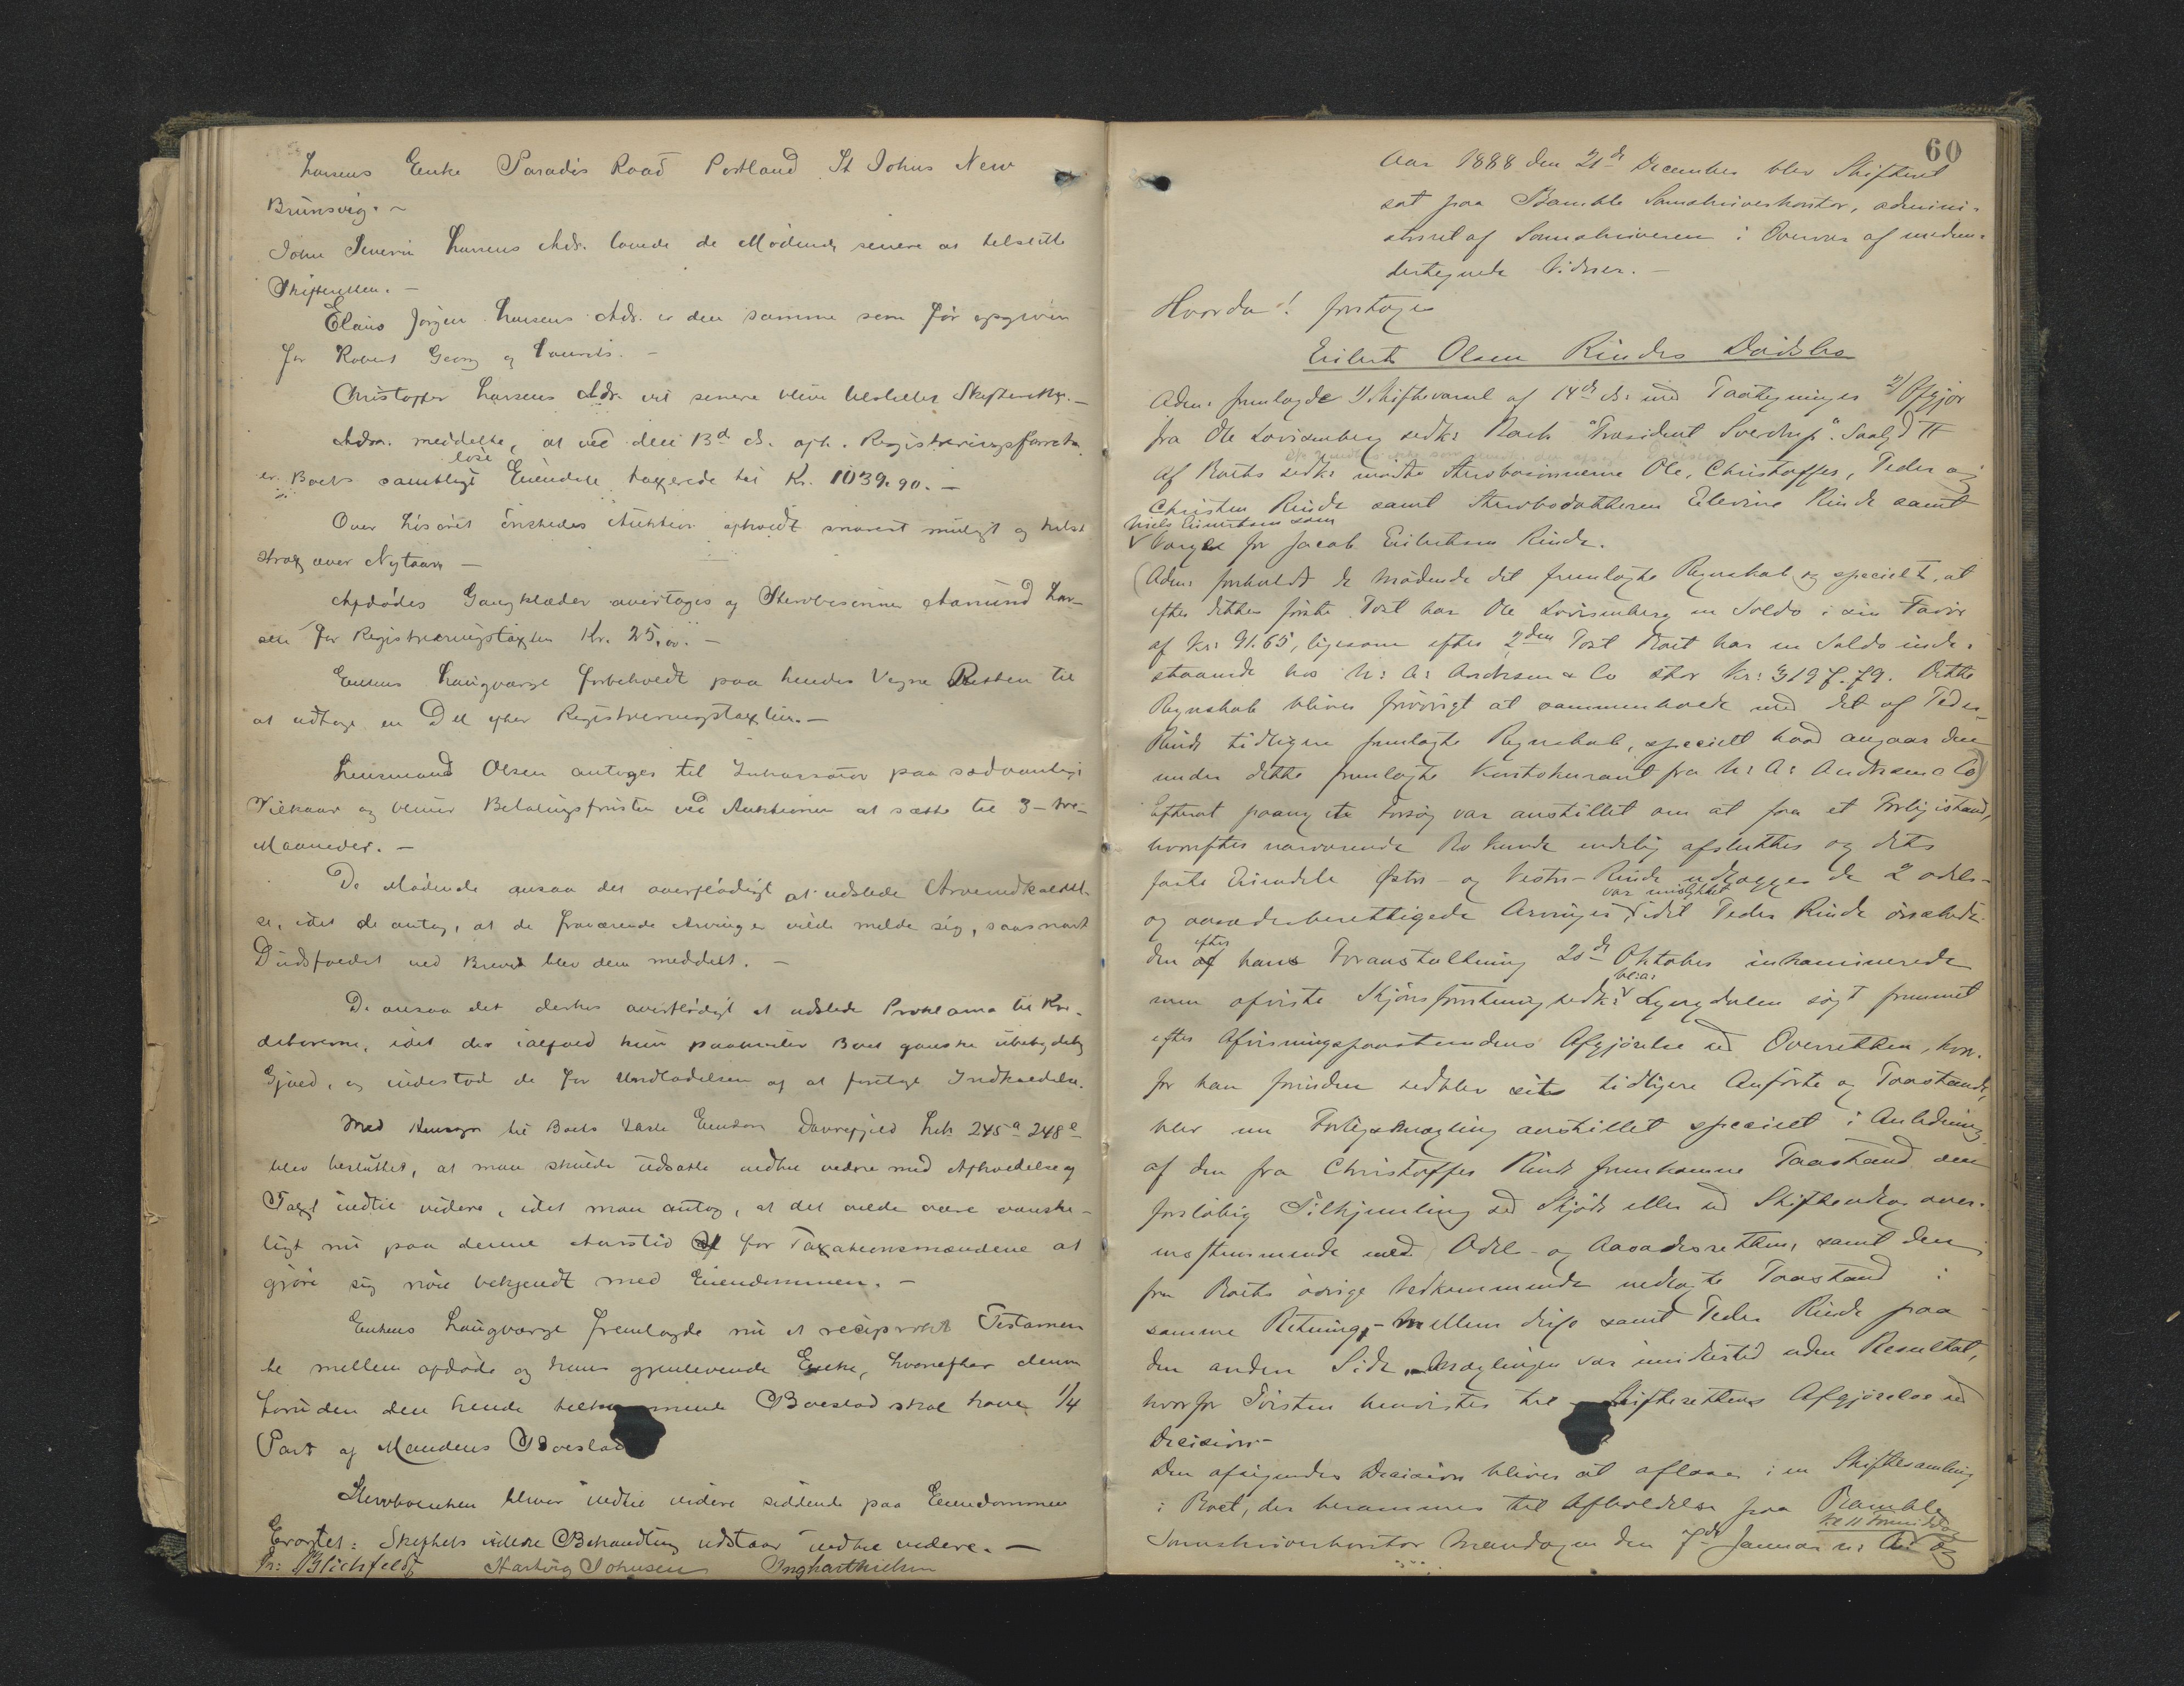 Larsens Enke Paradis Road Portland St Johns New
Brunsvig. –
John Severin Larsens Adr. lovede de Mødende senere at tilstille
Skifteretten. –
Elais Jørgen Larsens Adr. er den samme som før opgiven
for Robert Georg og Laurits. –
Christoffer Larsens Adr. vil senere blive tilstillet Skifteretten. –
Adm. meddelte, at ved den 13d ds. aph. Registreringsforretn.
løse
er Boets samtlige Eiendele taxerede til Kr. 1039.90. –
Over Løsøret ønskedes Auktion aphvoldt snarest muligt og helst
strax over Nytaar –
Afdødes Gangklæder overtages af Stervbosønnen Aanund Lar-
sen for Registreringstaxten Kr. 25,00. –
Enkens Laugværge forbeholdt paa hendes Vegne Retten til
at udtage en Del efter Registreringstaxten. –
Lensmand Olsen antoges til Inkassator paa sædvanlige
Vilkaar og bliver Betalingsfristen ved Auktionen at sætte til 3 – tre –
Maaneder. –
De Mødende ansaa det overflødigt at udstede Arveindkaldel-
se, idet de antog, at de fraværende Arvinger vilde melde sig, saasnart
Dødsfaldet ved Brevet blev dem meddelt. –
De ansaa det derhos overflødigt at udstede Proklama til Kre-
ditorerne, idet der ialfald kun paahviler Boet ganske ubetydelig
Gjæld, og indestod de for Undladelsen af at foretage Indkaldelse.
Med Hensyn til Boets faste Eiendom Davrefjeld Lnr. 245a 248e
blev besluttet, at man skulde udsætte indtil videre med Aphvoldelse af
Taxt indtil videre, idet man antog, at det vilde være vanske-
ligt nu paa denne Aarstid for Taxationsmændene at
gjøre sig nøie bekjendt med Eiendommen. –
Enkens Laugværge fremlagde nu et reciprokt Testamen
te mellem afdøde og hans gjenlevende Enke, hvorefter denne
foruden den hende tilkommende Boeslod skal have 1/4
Part af Mandens Boeslod
Stervboenken bliver indtil videre siddende paa Eiendommen
Erartet: Skiftets videre Behandling udstaar indtil videre. –
Fr: Blichfeldt Hartvig Johnsen
60
Aar 1888 den 21de December blev Skifteret
sat paa Bamble Sorenskriverkontor, admini-
streret af Sorenskriveren i Overvær af meden-
dertegnede Vidner. –
Hvorda! foretoges
Eilert Olsen Rindes Dødsbo
Adm: fremlagde 1) Skiftevarsel af 14de ds: med Paategninger 2) Opgjør
fra Ole Lovisenberg vedk: Bark "Præsident Sverdrup".
af Boets vedk: mødte Stervbosønnerne Ole, Christoffer, Peder og
Christen Rinde samt Stervbodatteren Elevine Rinde samt
Niels Eilertsen som
Værge for Jacob Eilertsen Rinde.
(Adm: foreholdt de Mødende det fremlagte Regnskab og specielt, at
efter dettes første Post har Ole Lovisenberg en Saldo i sin Favør
af Kr: 91.65, ligesom efter 2den Post Boet har en Saldo inde-
staaende hos N: A: Andersen & Co stor Kr: 3197.79. Dette
Regnskab bliver forøvrigt at sammenholde med det af Peder
Rinde tidligere fremlagte Regnskab, specielt hvad angaar den
under dette fremlagte Kontokurant fra N: A: Andersen & Co)
Efterat paany et Forsøg var anstillet om at faa et Forlig istand,
hvorefter nærværende Bo kunde endelig afsluttes og dets
faste Eiendele Østre- og Vestre-Rinde udlægges de 2 odels-
var mislykket
og aasædesberettigede Arvinger, idet Peder Rinde ønskede
efter
den af hans Foranstaltning 20de Oktober inkaminerede
bl:a:
men afviste Skjønsforretning vedk: Lyngdalen søgt fremmet
efter Afvisningspaastandens Afgjørelse ved Overretten, hvor-
for han forinden vedblev sit tidligere Anførte og Paastande,
blev nu Forligsmægling anstillet specielt i Anledning
af den fra Christoffer Rinde fremkomne Paastand om
foreløbig Tilkjendelse ved Skjøde eller ved Skifteudlæg over-
ensstemmende med Odel- og Aasædesretten, samt den
fra Boets øvrige Vedkommende nedlagte Paastand i
samme Retning, – Mellem disse samt Peder Rinde paa
den anden Side. Mæglingen var imidlertid uden Resultat,
hvorfor Tvisten henvistes til Skifterettens Afgjørelse ved
Decision –
Den afsigendes Decision bliver at aflæse i en Skiftesamling
i Boet, der berammes til Afholdelse paa Bamble
Kl 11 Formiddag
Sorenskriverkontor Mandagen den 7de Januar n: A: og